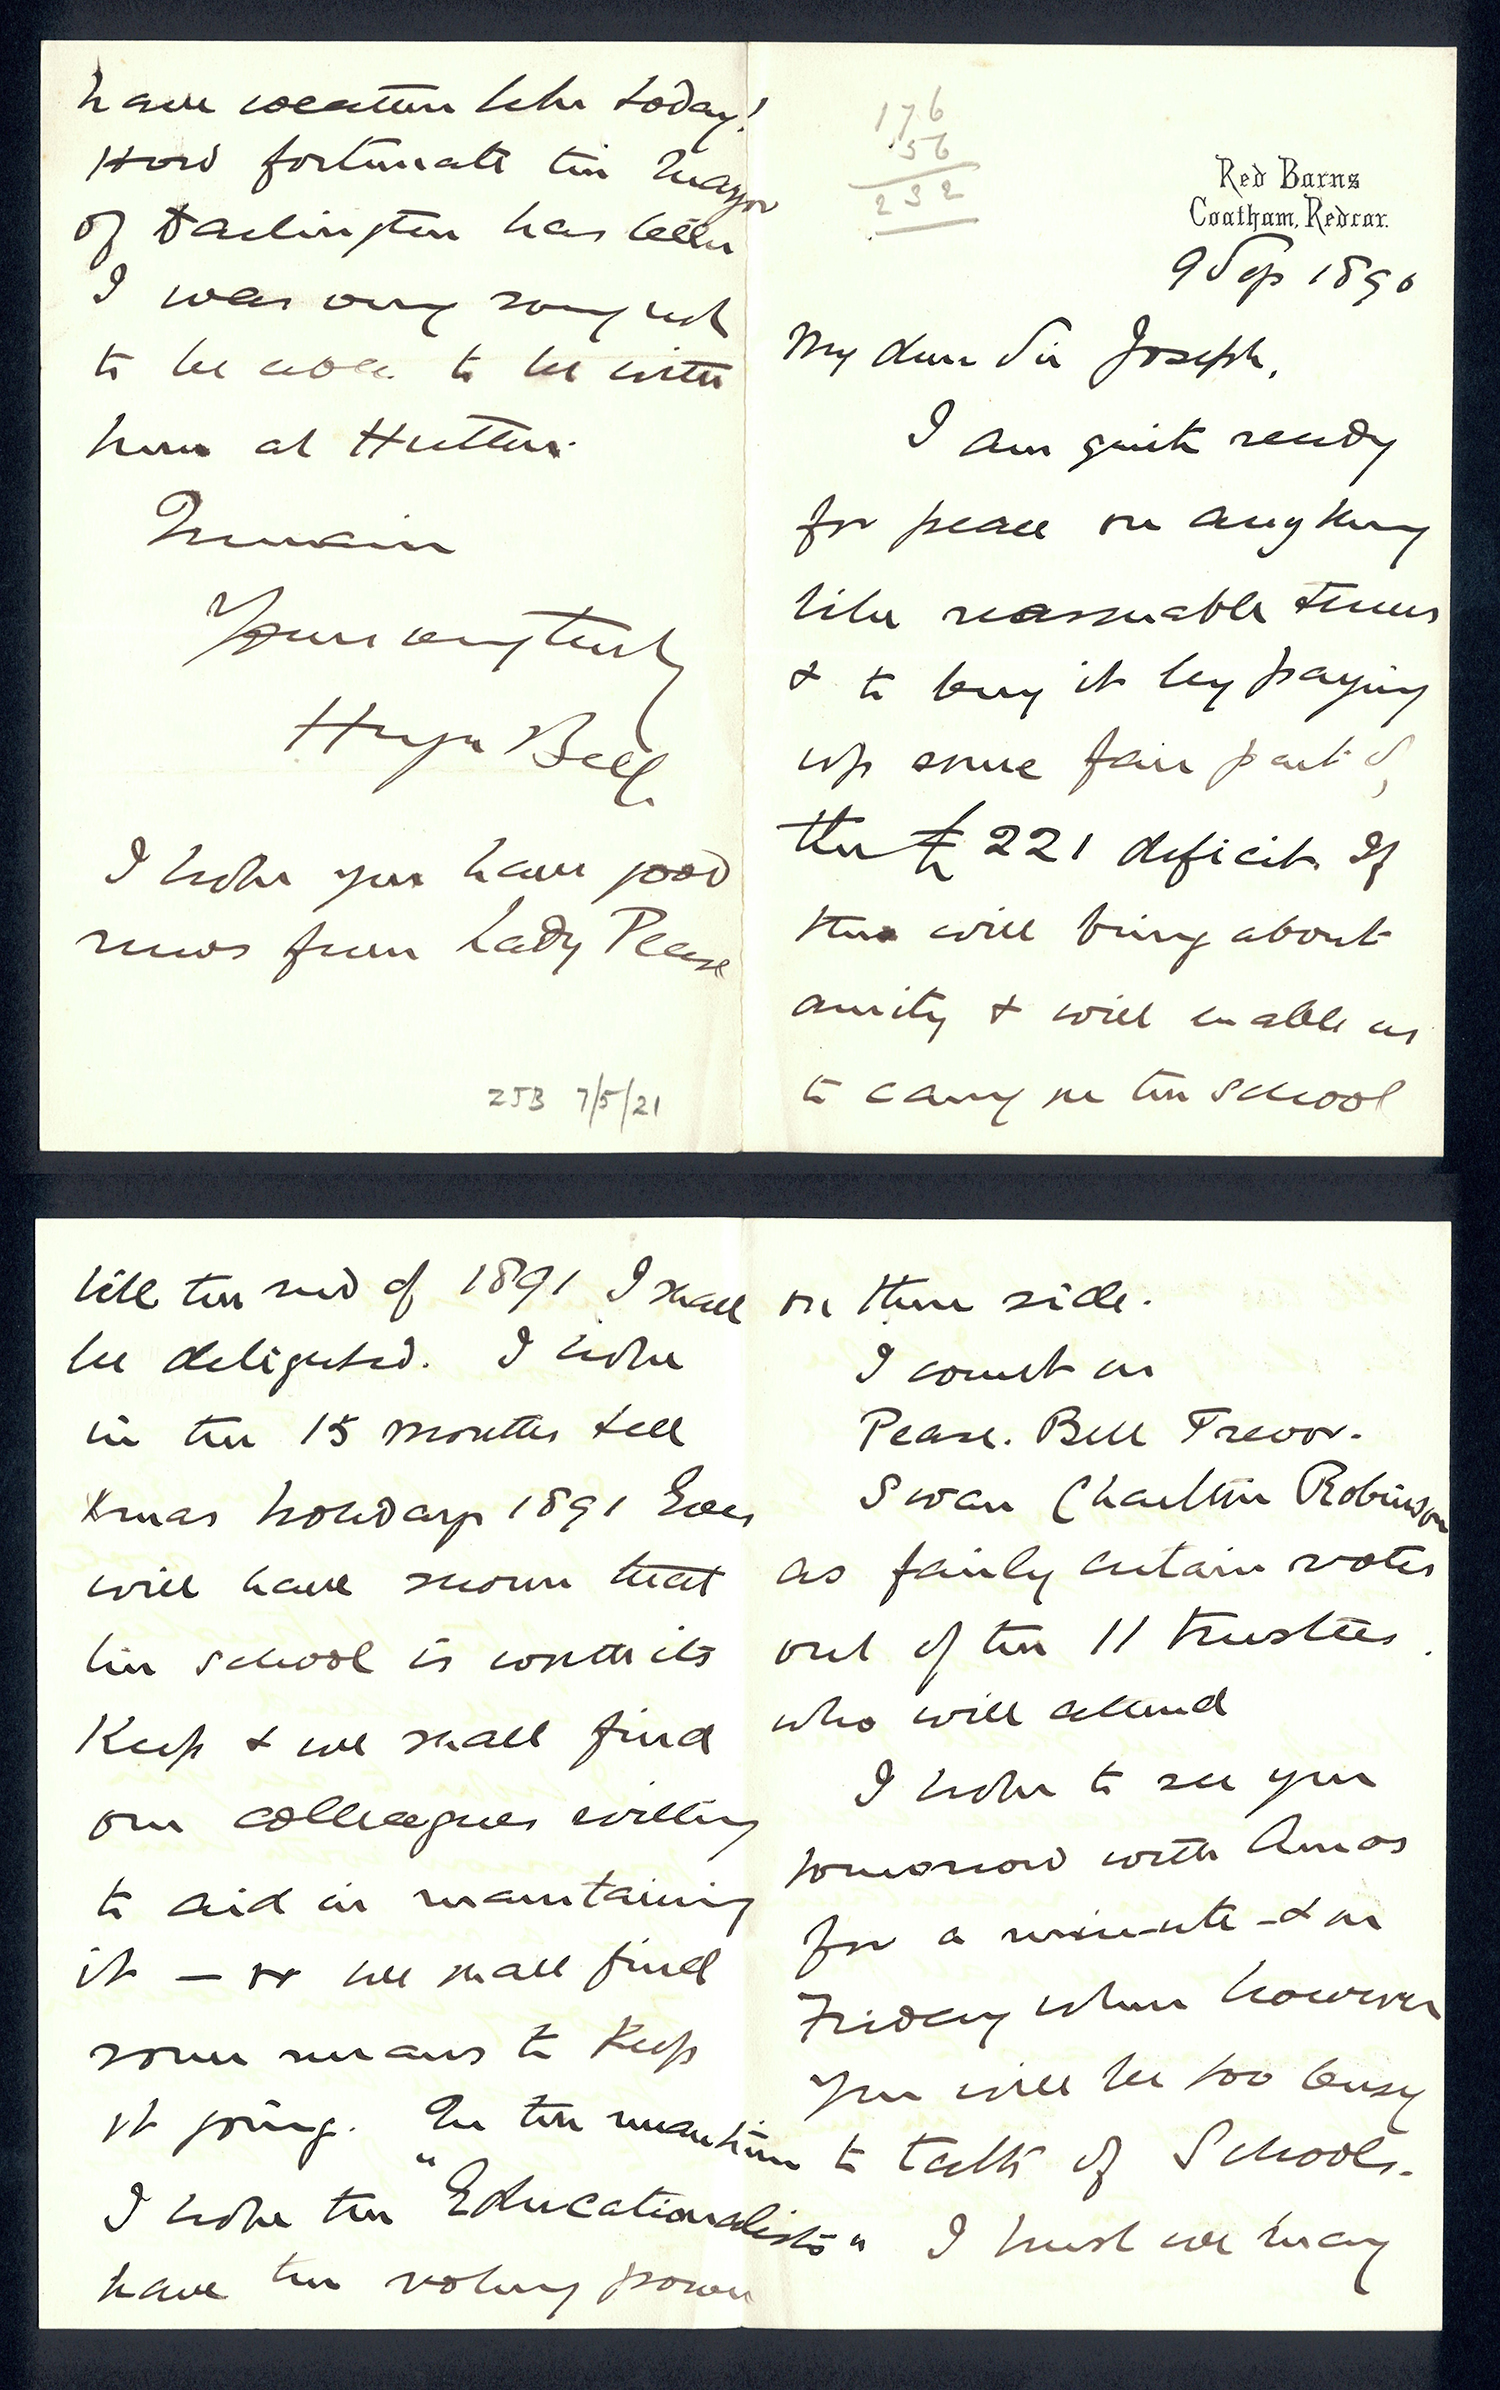 176
56
232
Red Barns
Coatham, Redcar.
9 Sep 1890
My dear Sir Joseph,
I am quite ready
for peace on anything
like reasonable terms
& to buy it by paying
up some fair part of
the £221 deficit. If
this will bring about
amity & will enable us
to carry on the school
till the end of 1891 I shall
be delighted. I hope
in the 15 months till
Xmas holidays 1891
will have shown that
the school is worth its
keep & we shall find
our colleagues willing
to aid in maintaining
it — or we shall find
some means to keep
it going. In the meantime
I hope the "Educationalists"
have the voting power
on their side.
I count on
Pease. Bell Trevor.
Swan Charlton Robinson
as fairly certain votes
out of the 11 trustees.
who will attend
I hope to see you
tomorrow with Amos
for a minute - & on
Friday when however
you will be too busy
to talk of Schools.
I trust we may
have weather like today!
How fortunate the Mayor
of Darlington has been
I was very sorry not
to be able to be with
him at Hutton.
Remain
Yours very truly
Hugh Bell.
I hope you have good
news from Lady Pease
25B 7/5/21